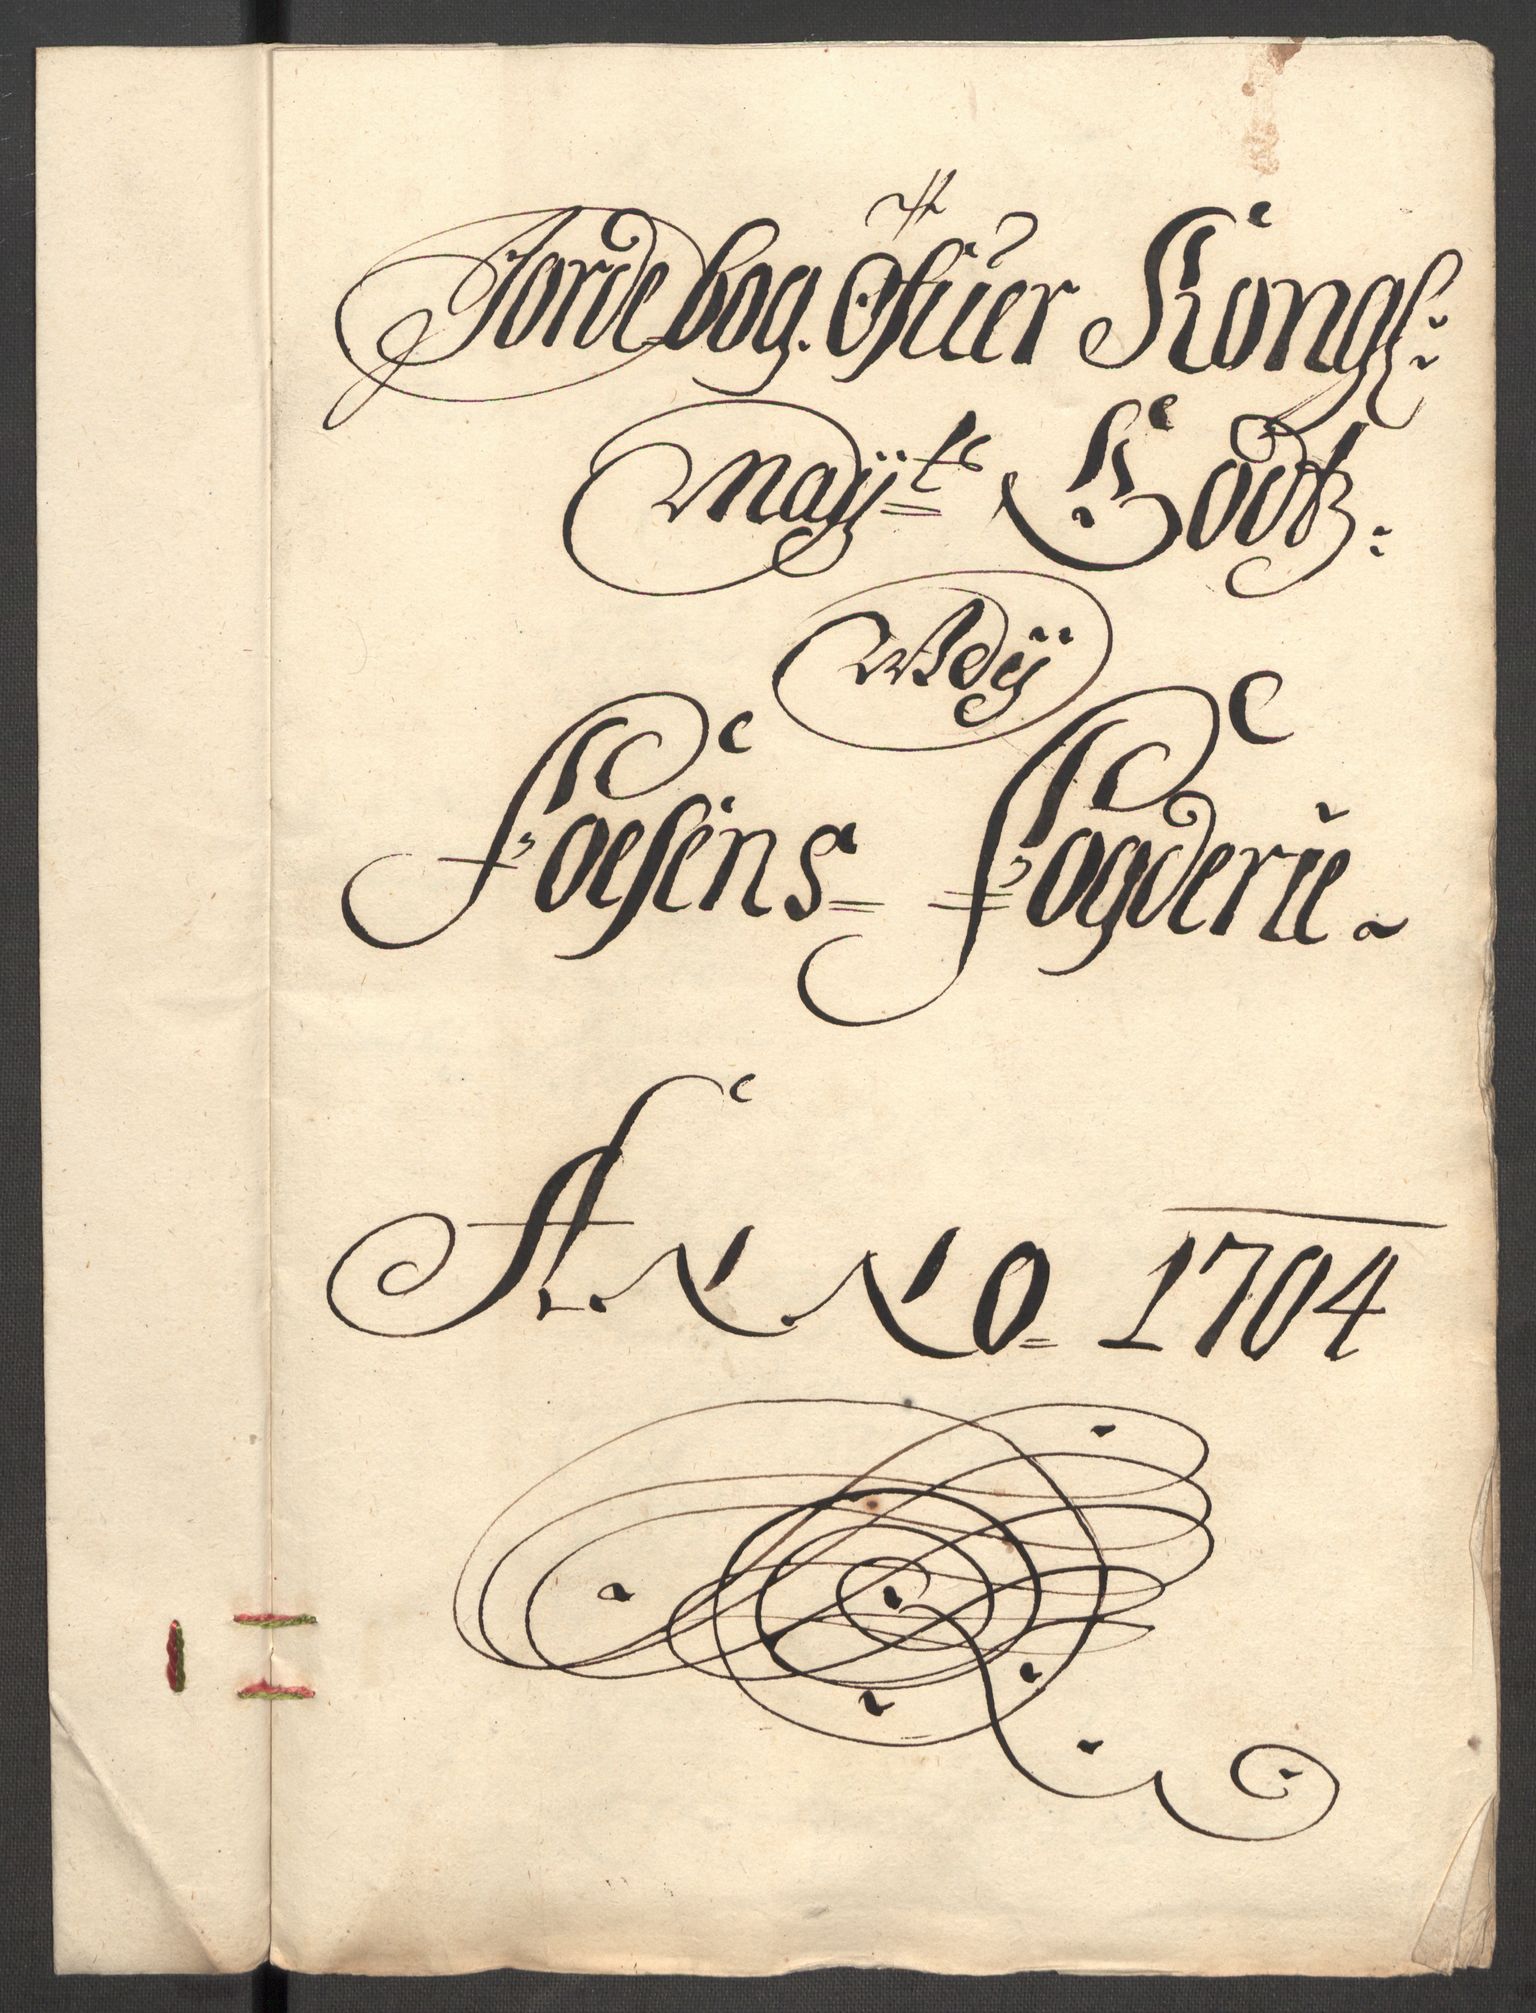 Jordebog. Øfuer Kongl:
Mayÿts Godtz:
Udÿ
Foesens Fogderie
Anno 1704